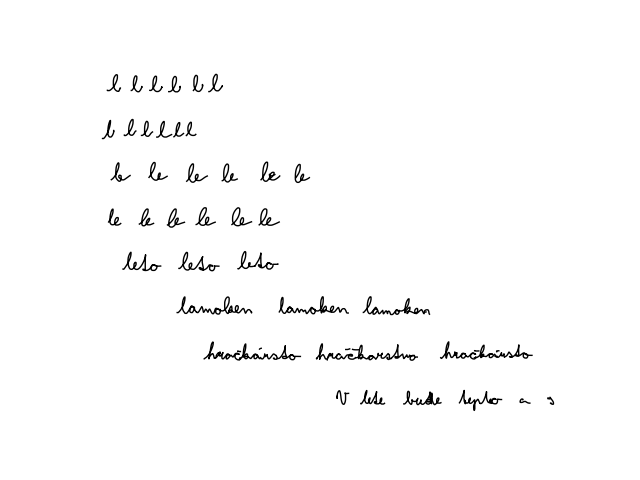 l l l l l l
l l l l l l
le le le le le le
le le le le le le
leto leto leto
lamoken lamoken lamoken
hračkárstvo hračkarstvo hračkárstvo
V lete bude teplo a s